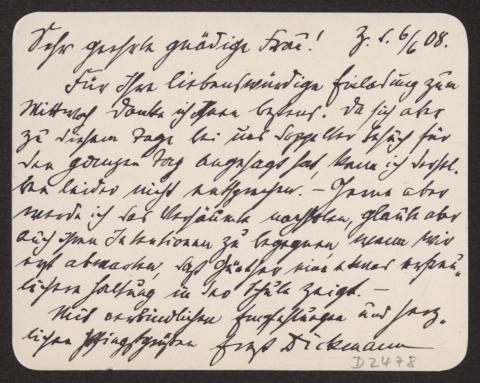 Sehr geehrte gnädige Frau! Z. d. 6/6 08.
Für Ihre liebenswürdige Einladung zum
Mittwoch danke ich Ihnen bestens. Da sich aber
zu diesem Tage bei uns doppelter Besuch für
den ganzen Tag angesagt hat, kann ich dersel-
ben leider nicht entsprechen. – Gerne aber
werde ich das Versäumte nachholen, glaube aber
auch Ihren Intentionen zu begegnen, wenn wir
erst abwarten, daß Günther eine etwas erfreu-
lichere Haltung in der Schule zeigt. –
Mit verbindlichen Empfehlungen und herz-
lichen Pfingstgrüßen Ernst Dickmann
D2478